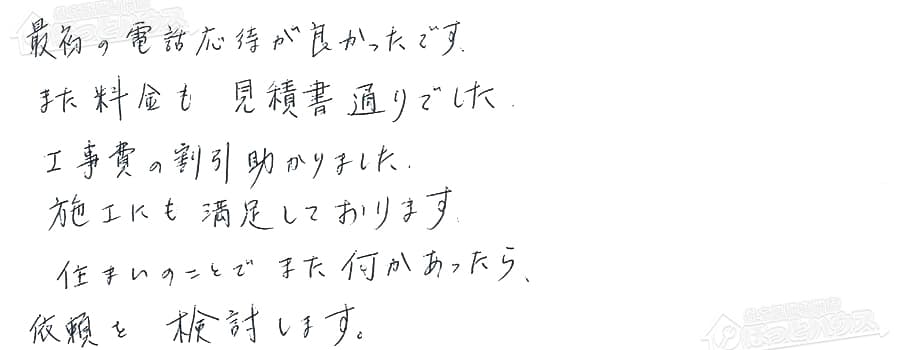 最初の電話応待が良かったです.
また料金も 見積書通りでした.
工事費の割引助かりました.
施工にも満足しております.
住まいのことでまた何かあったら、
依頼を検討します。